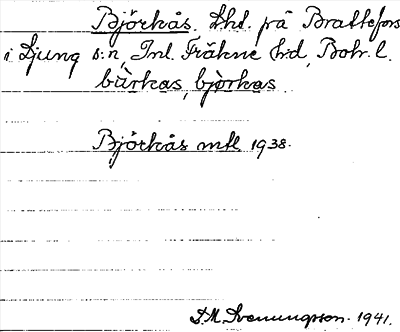 Björkås. Lhl. på Brattefors
i Ljung s:n, Inl. Fräkne h:d, Boh. l.
bùrkas, bjòrkas
Björkås mtl 1938.
S.M. Svenungsson. 1941.